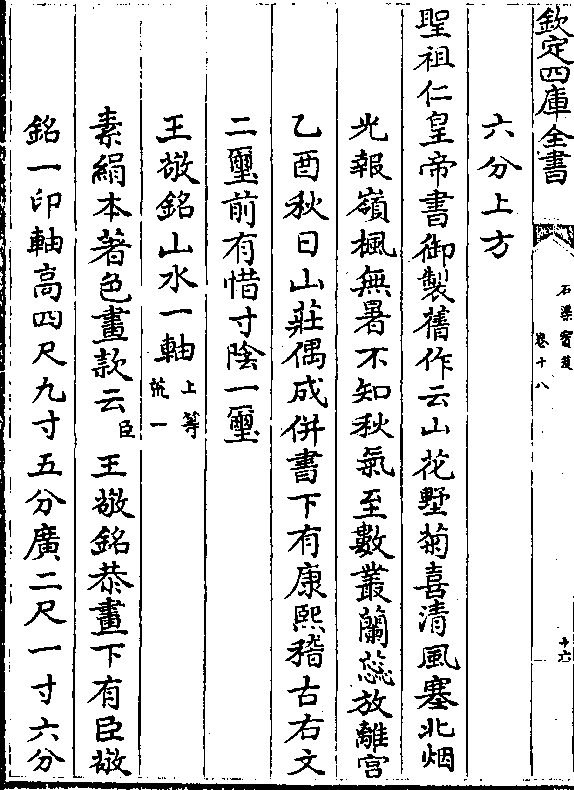 欽定四庫全書
石渠寶笈
卷十八
十六
六分上方
聖祖仁皇帝書御製舊作云山花野菊喜清風塞北烟
光報嶺楓無暑不知秋氣至數叢蘭蕊放離宮
乙酉秋日山莊偶成併書下有康熙稽古右文
二璽前有惜寸陰一璽
王敬銘山水一軸上等
號一
素絹本著色畫款云臣王敬銘恭畫下有臣敬
銘一印軸高四尺九寸五分廣二尺一寸六分